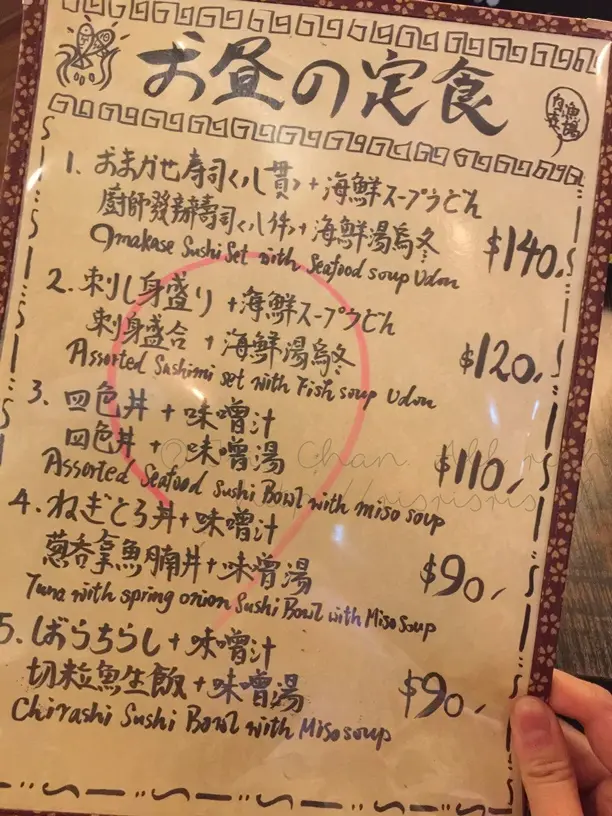 お昼の定食
1. おまかせ寿司<八貫>+海鮮スープうどん
廚師發辦壽司<八件>+海鮮湯烏冬
Omakase Sushi Set with Seafood soup Udon
$140.
2. 刺し身盛り+海鮮スープうどん
刺身盛合+海鮮湯烏冬
Assorted Sashimi set with Fish soup Udon
$120.
3. 四色丼+味噌汁
四色丼+味噌湯
Assorted Seafood Sushi Bowl with miso soup
$110.
4. ねぎとろ丼+味噌汁
蔥吞拿魚腩丼+味噌湯
Tuna with spring onion Sushi Bowl with Miso Soup
$90.
5. ばらちらし+味噌汁
切粒魚生飯+味噌湯
Chirashi Sushi Bowl with Miso soup
$90.